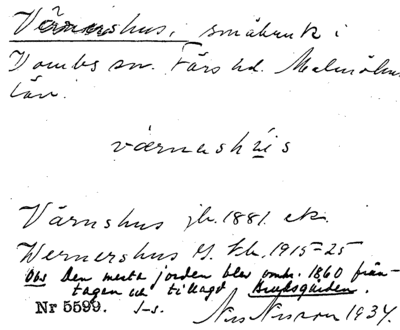 Värnershus, småbruk i
Vombs sn. Färs hd. Malmöhus
län.
värnashús
Värnshus jb. 1881. ek.
Wernershus G. kb. 1915-25
Obs Den mesta jorden blev omkr. 1860 från-
tagen och tillagd Bruksgården.
Nr 5599. I-s.
Nils Nilsson 1934.